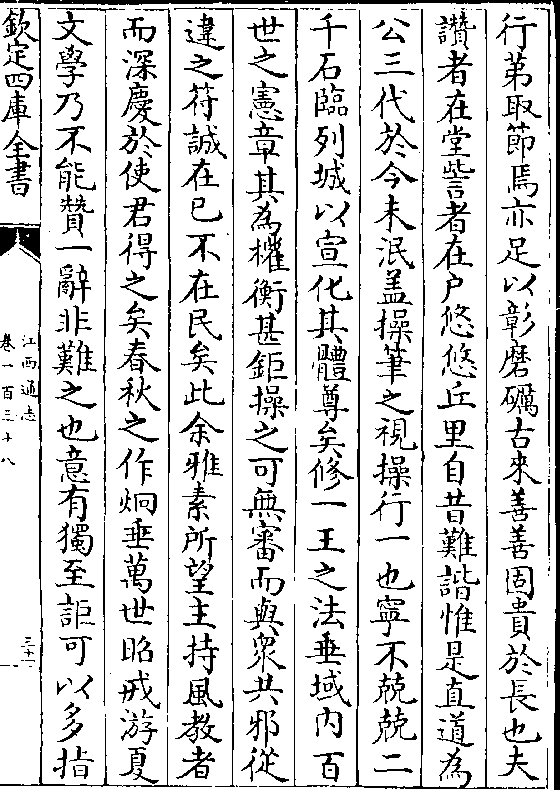 行第取節焉亦足以彰磨礪古來善善固貴於長也夫
讚者在堂訾者在户悠悠丘里自昔難諧惟是直道為
公三代於今未泯盖操筆之視操行一也寧不兢兢二
千石臨列城以宣化其體尊矣修一王之法垂域内百
世之憲章其為權衡甚鉅操之可無審而與衆共邪從
違之符誠在已不在民矣此余雅素所望主持風教者
而深慶於使君得之矣春秋之作炯垂萬世昭戒游夏
文學乃不能贊一辭非難之也意有獨至詎可以多指
欽定四庫全書
江西通志
卷一百三十八
三十一